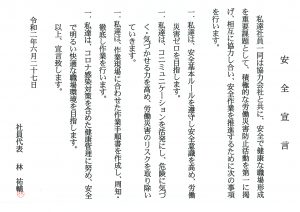 安全宣言
私達社員一同は協力会社と共に、安全で健康な職場形成
を重要課題として、積極的な労働災害防止活動を第一に掲
げ、相互に協力し合い、安全作業を推進するために次の事項
を行います。
一、私達は、安全基本ルールを遵守し安全意識を高め、労働
災害ゼロを目指します。
一、私達は、コミニュニケーションを活発にし、危険に気づ
く・気づかせる力を高め、労働災害のリスクを取り除い
ていきます。
一、私達は、作業現場に合わせた作業手順書を作成し、周知・
徹底し作業を行います。
一、私達は、コロナ感染対策を含めた健康管理に努め、安全
で明るい快適な職場環境を目指します。
以上、宣言致します。
令和二年六月二十七日
社員代表 林 祐輔